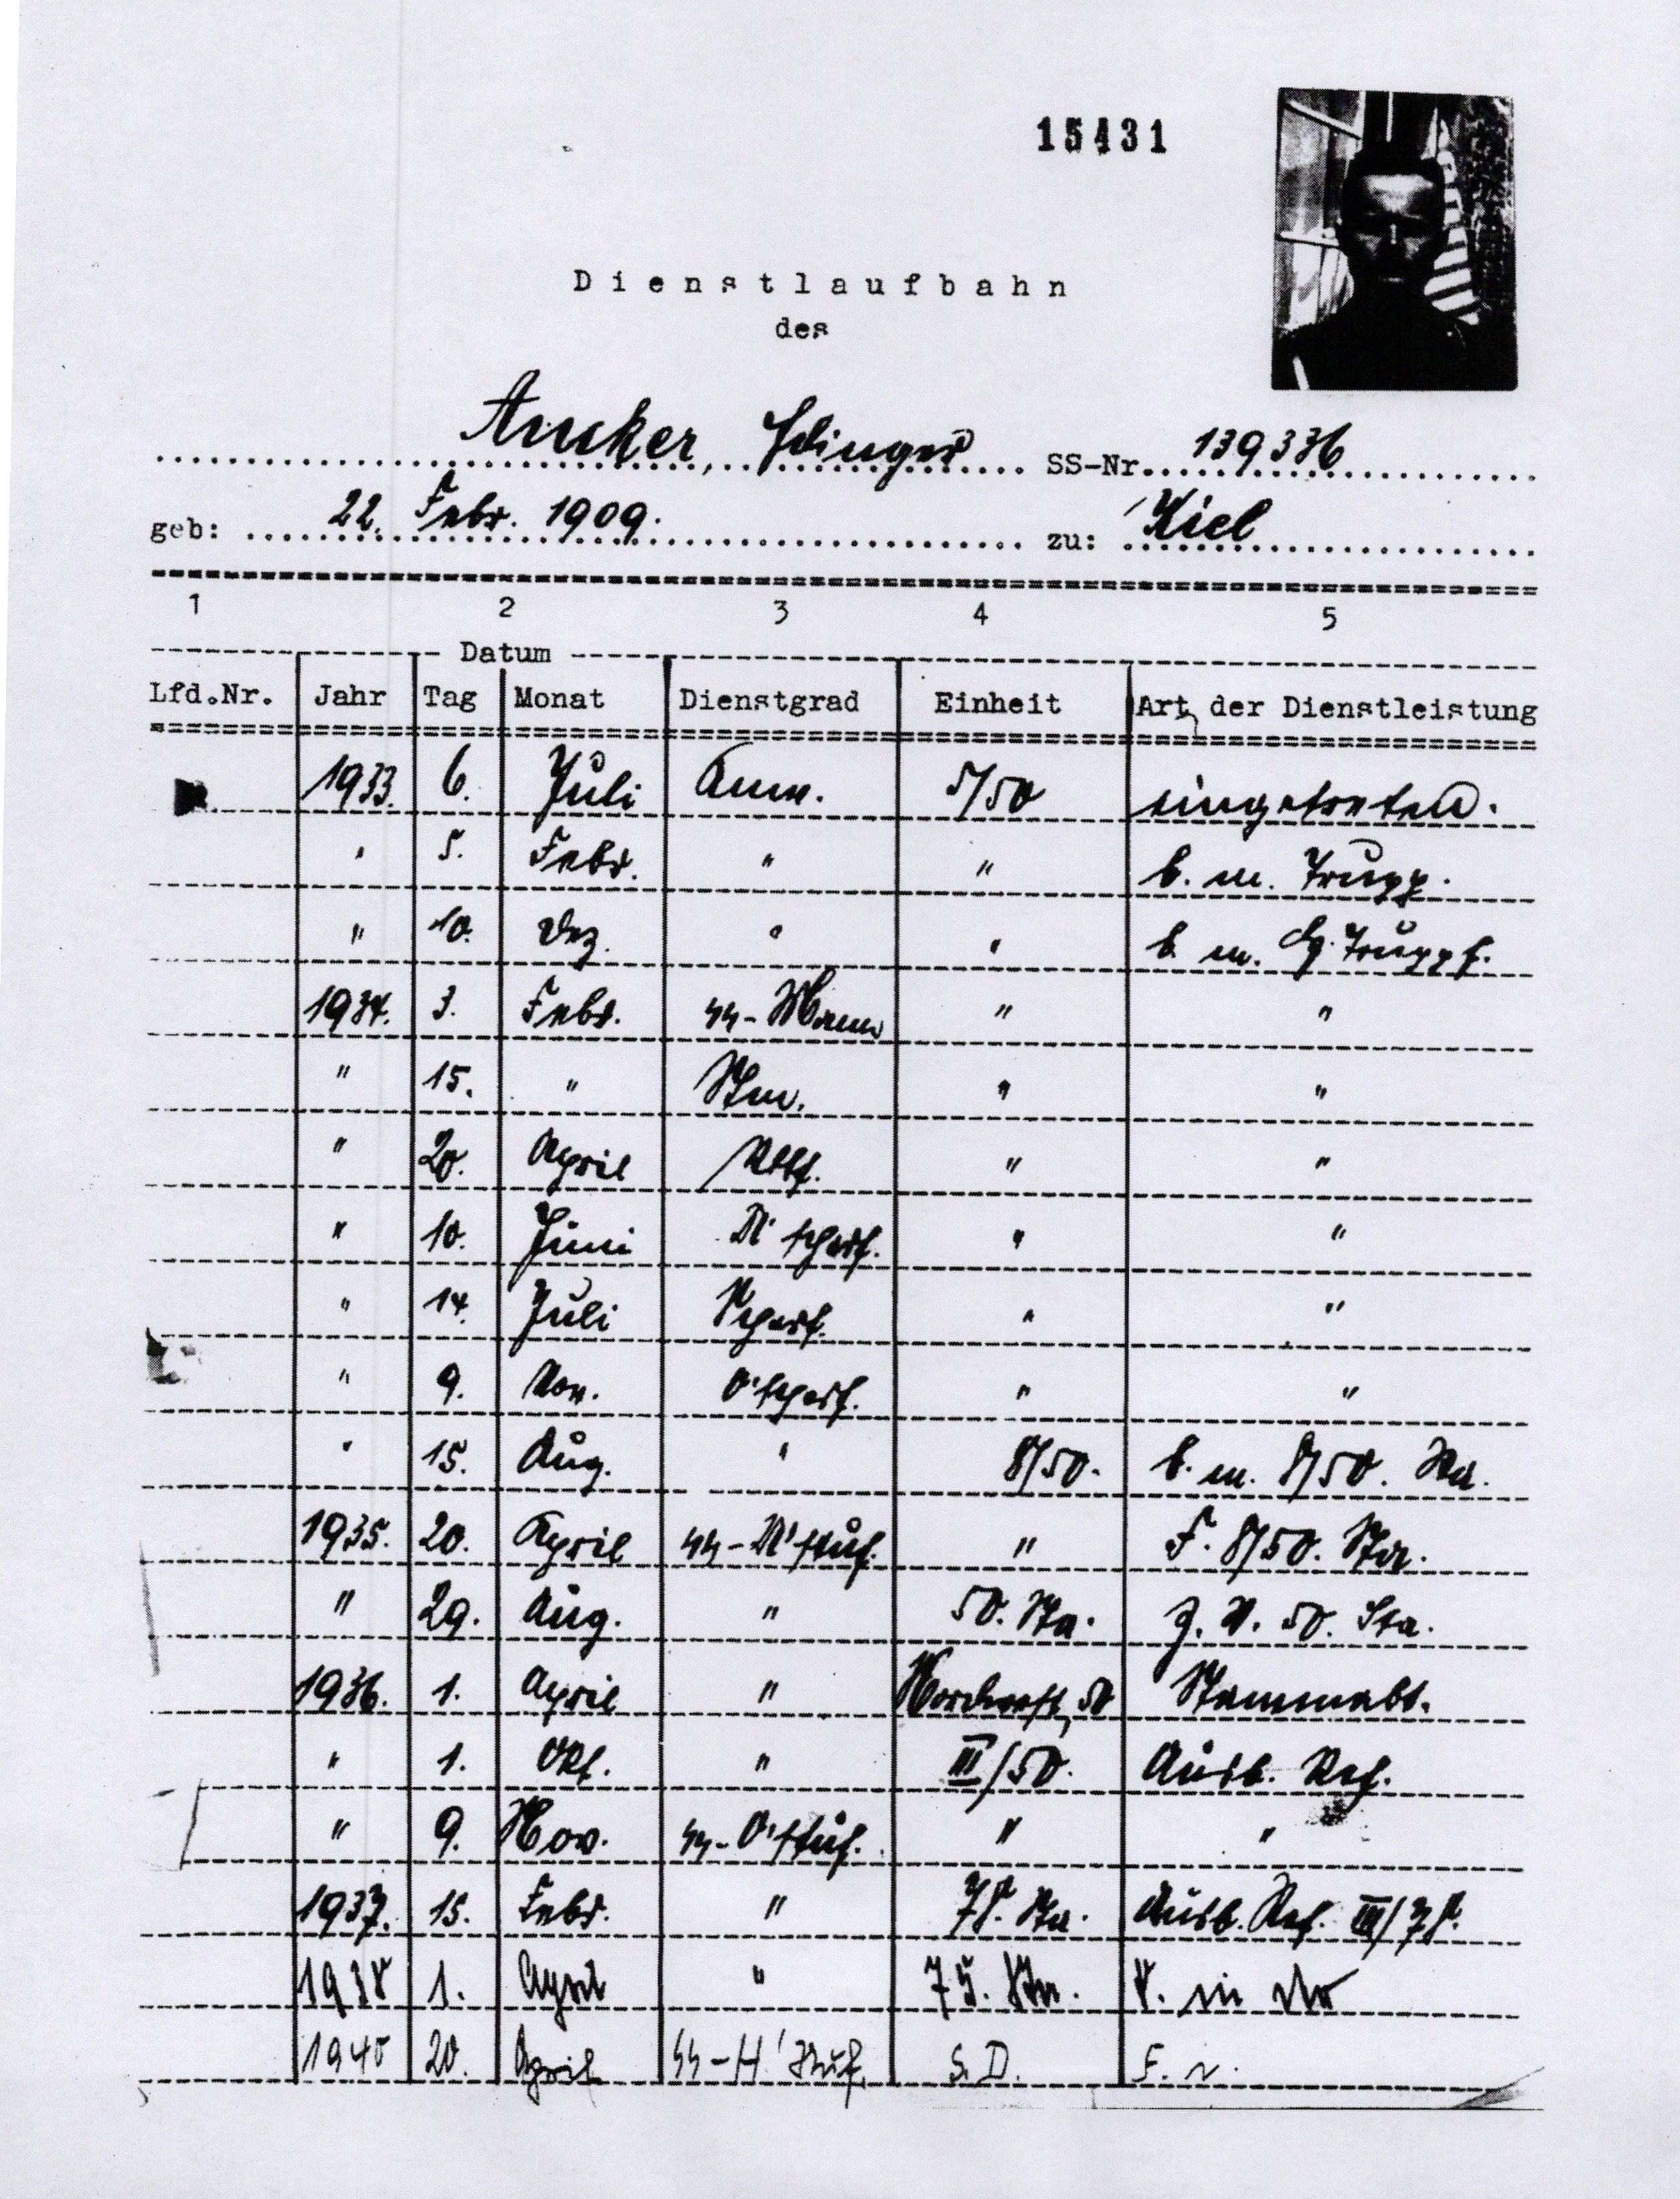 15431
Dienstlaufbahn
des
Ancker, Edingar SS-Nr. 139336
geb: 22. Febr. 1909. zu: Kiel
1 2 3 4 5
Datum
Lfd.Nr. Jahr Tag Monat Dienstgrad Einheit Art der Dienstleistung
1933. 6. Juli Anw. 5/50 eingetreten.
" 5. Febr. " " b. m. Trupp.
" 10. Dez. " " b. m. Truppf.
1934. 3. Febr. SS-Mann " "
" 15. " Stm. " "
" 20. April Rttf. " "
" 10. Juni U'scharf. " "
" 14. Juli Scharf. " "
" 9. Nov. O'scharf. " "
" 15. Aug. " 8/50. b. m. 8/50. Sta.
1935. 20. April SS-U'stuf. " F. 8/50. Sta.
" 29. Aug. " 50. Sta. z. V. 50. Sta.
1936. 1. April " 50 Stammabt.
" 1. Okt. " III/50. Ausb. Ref.
" 9. Nov. SS-O'stuf. " "
1937. 15. Febr. " 78. Sta. Ausb. Ref. III/78.
1938 1. April " 75. Sta. F. im
1940 20. April SS-H'Stuf. S.D. F.